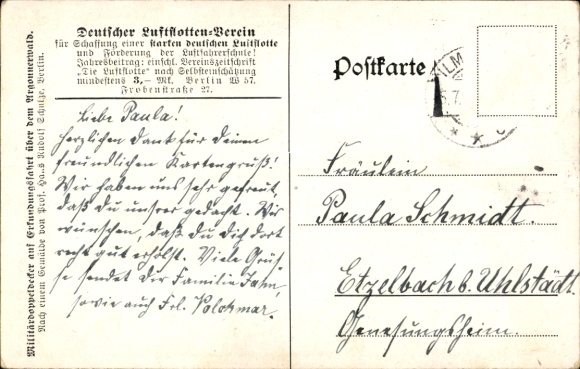 Militärdoppeldecker auf Erkundungsfahrt über dem Argonnerwald.
Nach einem Gemälde von Prof. Hans Rudolf Schulze, Berlin.
Deutscher Luftflotten-Verein
für Schaffung einer starken deutschen Luftflotte
und Förderung der Luftfahrerschule!
Jahresbeitrag: einschl. Vereinszeitschrift
"Die Luftflotte" nach Selbsteinschätzung
mindestens 3,— Mk. Berlin W 57.
Frobenstraße 27.
Liebe Paula!
Herzlichen Dank für Deinen
freundlichen Kartengruß!
Wir haben uns sehr gefreut,
daß Du unsrer gedacht. Wir
wünschen, daß Du Dich dort
recht gut erholst. Viele Grüs-
se sendet Dir Familie
sowie auch Frl. Volckmar.
Postkarte
ILM
Fräulein
Paula Schmidt.
Etzelbach b. Uhlstädt.
Genesungsheim.